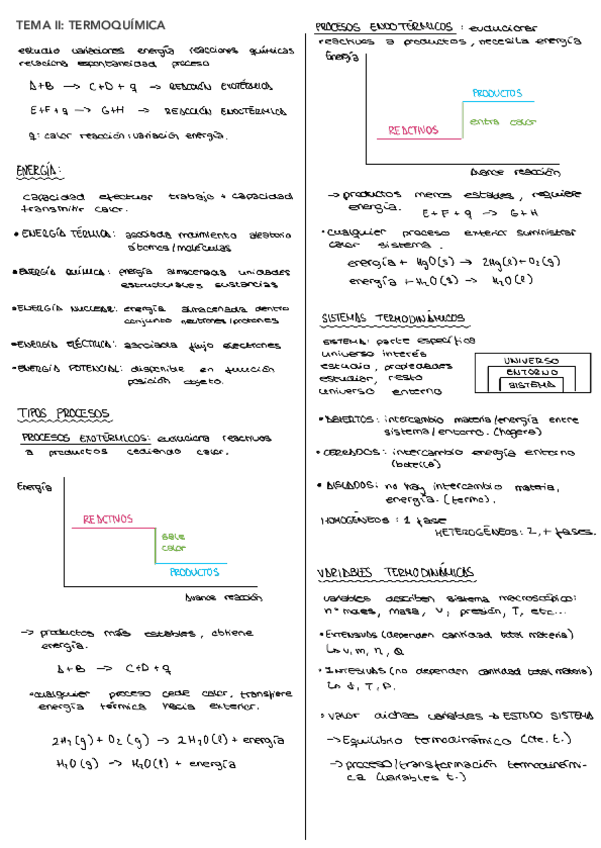 TEMA II: TERMOQUÍMICA
estudio variaciones energía reacciones químicas
relaciona espontaneidad proceso
A+B → C+D+q → REACCIÓN EXOTÉRMICA
E+F+q → G+H → REACCIÓN ENDOTÉRMICA
q: calor reacción: variación energía.
ENERGÍA:
capacidad efectuar trabajo + capacidad
transmitir calor.
• ENERGÍA TÉRMICA: asociada movimiento aleatorio
átomos/moléculas
• ENERGÍA QUÍMICA: energía almacenada unidades
estructurales sustancias
• ENERGÍA NUCLEAR: energía almacenada dentro
conjunto neutrones/protones
• ENERGÍA ELÉCTRICA: asociada flujo electrones
• ENERGÍA POTENCIAL: disponible en función
posición objeto.
TIPOS PROCESOS
PROCESOS EXOTÉRMICOS: evoluciona reactivos
a productos cediendo calor.
Energía
REACTIVOS
sale
calor
PRODUCTOS
Avance reacción
→ productos más estables, obtiene
energía.
A+B → C+D+q
• cualquier proceso cede calor, transfiere
energía térmica hacia exterior.
2H₂(g) + O₂(g) → 2H₂O(l) + energía
H₂O(g) → H₂O(l) + energía
PROCESOS ENDOTÉRMICOS: evolucionar
reactivos a productos, necesita energía
Energía
PRODUCTOS
entra calor
REACTIVOS
Avance reacción
→ productos menos estables, requiere
energía. E+F+q → G+H
• cualquier proceso exterior suministrar
calor sistema.
energía + HgO(s) → 2Hg(l) + O₂(g)
energía + H₂O(s) → H₂O(l)
SISTEMAS TERMODINÁMICOS
SISTEMA: parte específica
universo interés
estudio, propiedades
estudiar, resto
universo entorno
UNIVERSO
ENTORNO
SISTEMA
• ABIERTOS: intercambio materia/energía entre
sistema/entorno. (hoguera)
• CERRADOS: intercambio energía entorno
(botella)
• AISLADOS: no hay intercambio materia,
energía. (termo).
HOMOGÉNEOS: 1 fase
HETEROGÉNEOS: 2, + fases.
VARIABLES TERMODINÁMICAS
variables describen sistema macroscópico:
nº moles, masa, V, presión, T, etc...
• EXTENSIVAS (dependen cantidad total materia)
↳ V, m, n, Q
• INTESIVAS (no dependen cantidad total materia)
↳ d, T, P.
• valor dichas variables → ESTADO SISTEMA
→ Equilibrio termodinámico (cte. t.)
→ proceso/transformación termodinámi-
ca (variables t.)